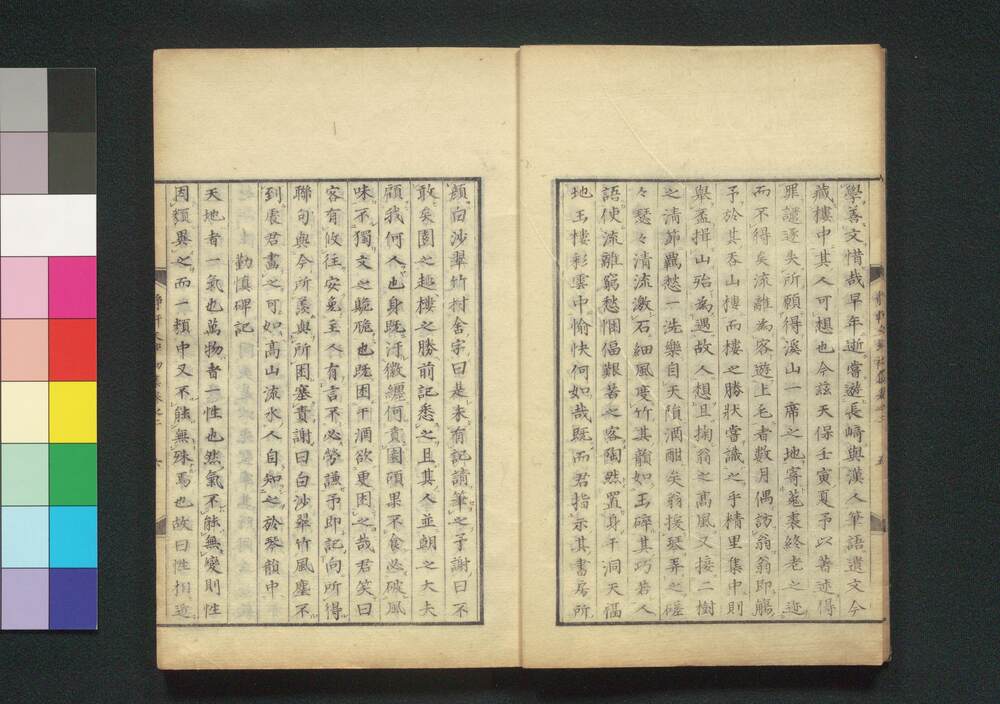 學善文惜哉早年逝嘗遊長崎與漢人筆語遺文今
藏樓中其人可想也今茲天保壬寅夏予以著述得
罪譴逐失所願得溪山一席之地寄菟裘終老之迹
而不得矣流離為客遊上毛者數月偶訪翁翁即觴
予於其吞山樓而樓之勝狀嘗識之乎精里集中則
舉盃揖山殆為遇故人想且掬翁之高風又接二樹
之清節羈愁一洗樂自天隕酒酣矣翁援琴弄之磋
々瑟々清流激石細風度竹其韻如玉碎其巧若人
語使流離窮愁悃愊艱著之客陶然置身于洞天福
地玉樓彩雲中愉快何如哉既而君指示其書房所
顏白沙翠竹村舍字曰是未有記請筆之予謝曰不
敢矣園之趣樓之勝前記悉之且其人並朝之大夫
顧我何人也身既汙徽纆何賁園頭果不食必破風
味不獨文之骫骳也既困于酒欲更困之哉君笑曰
客有攸往安免主人有言不必勞謙予即記向所得
聯句與今所羨與所困塞責謝曰白沙翠竹風塵不
到處君畫之可如高山流水人自知之於琴韻中
勤慎碑記
天地者一氣也萬物者一性也然氣不能無變則性
因類異之而一類中又不能無殊焉也故曰性相近